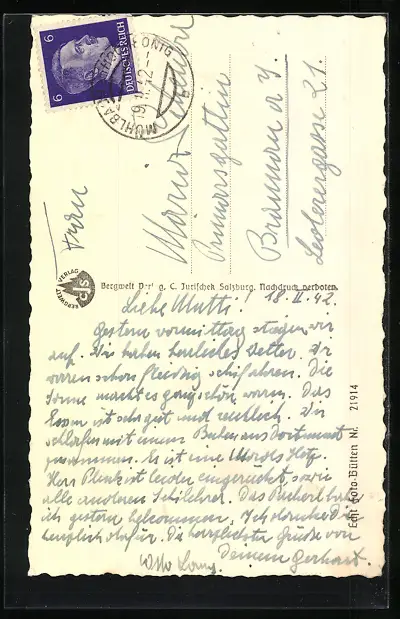 6
DEUTSCHES REICH
6
MÜHLBACH
HOCHKÖNIG
Frau
Maria
Primarsgattin
Braunau a J.
21.
BERGWELT VERLAG
CJS
Bergwelt C. Jurischek Salzburg. Nachdruck verboten.
Echt Foto-Bütten Nr. 21914
18. II. 42.
Liebe Mutti!
Gestern vormittag stiegen wir
auf. Wir haben herrliches Wetter. Wir
waren schon fleissig schifahren. Die
Sonne macht es ganz schön warm. Das
Essen ist sehr gut und reichlich. Wir
schlafen mit einem Buben aus Dortmund
zusammen. Es ist eine Mords Hetz.
Herr Plenk ist leider eingerückt, sowie
alle anderen Schilehrer. Das Packerl habe
ich gestern bekommen, Ich danke Dir
herzlich dafür. Die herzlichsten Grüsse von
Deinem Gerhart.